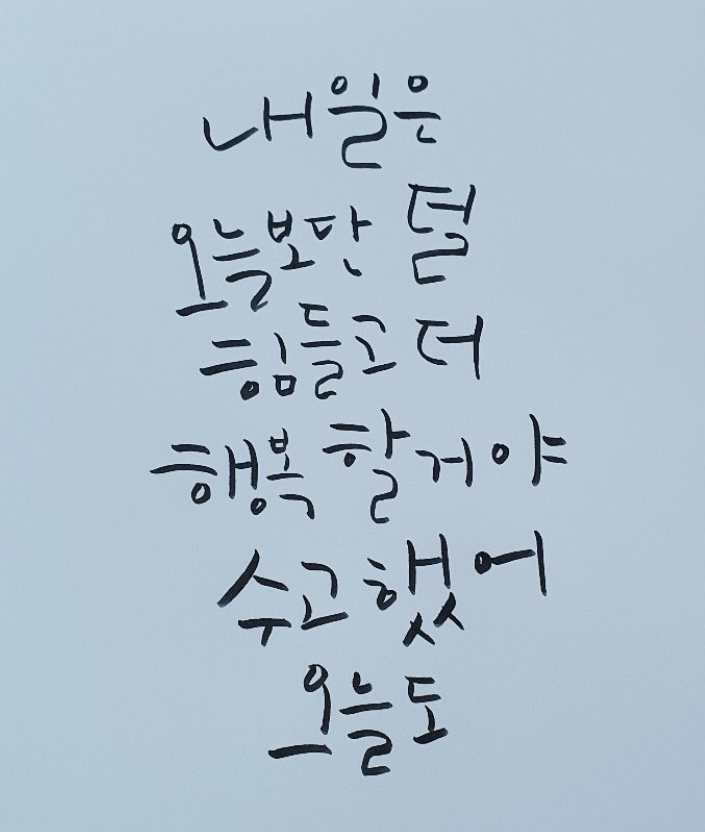 내일은
오늘보단 덜
힘들고 더
행복 할거야
수고했어
오늘도